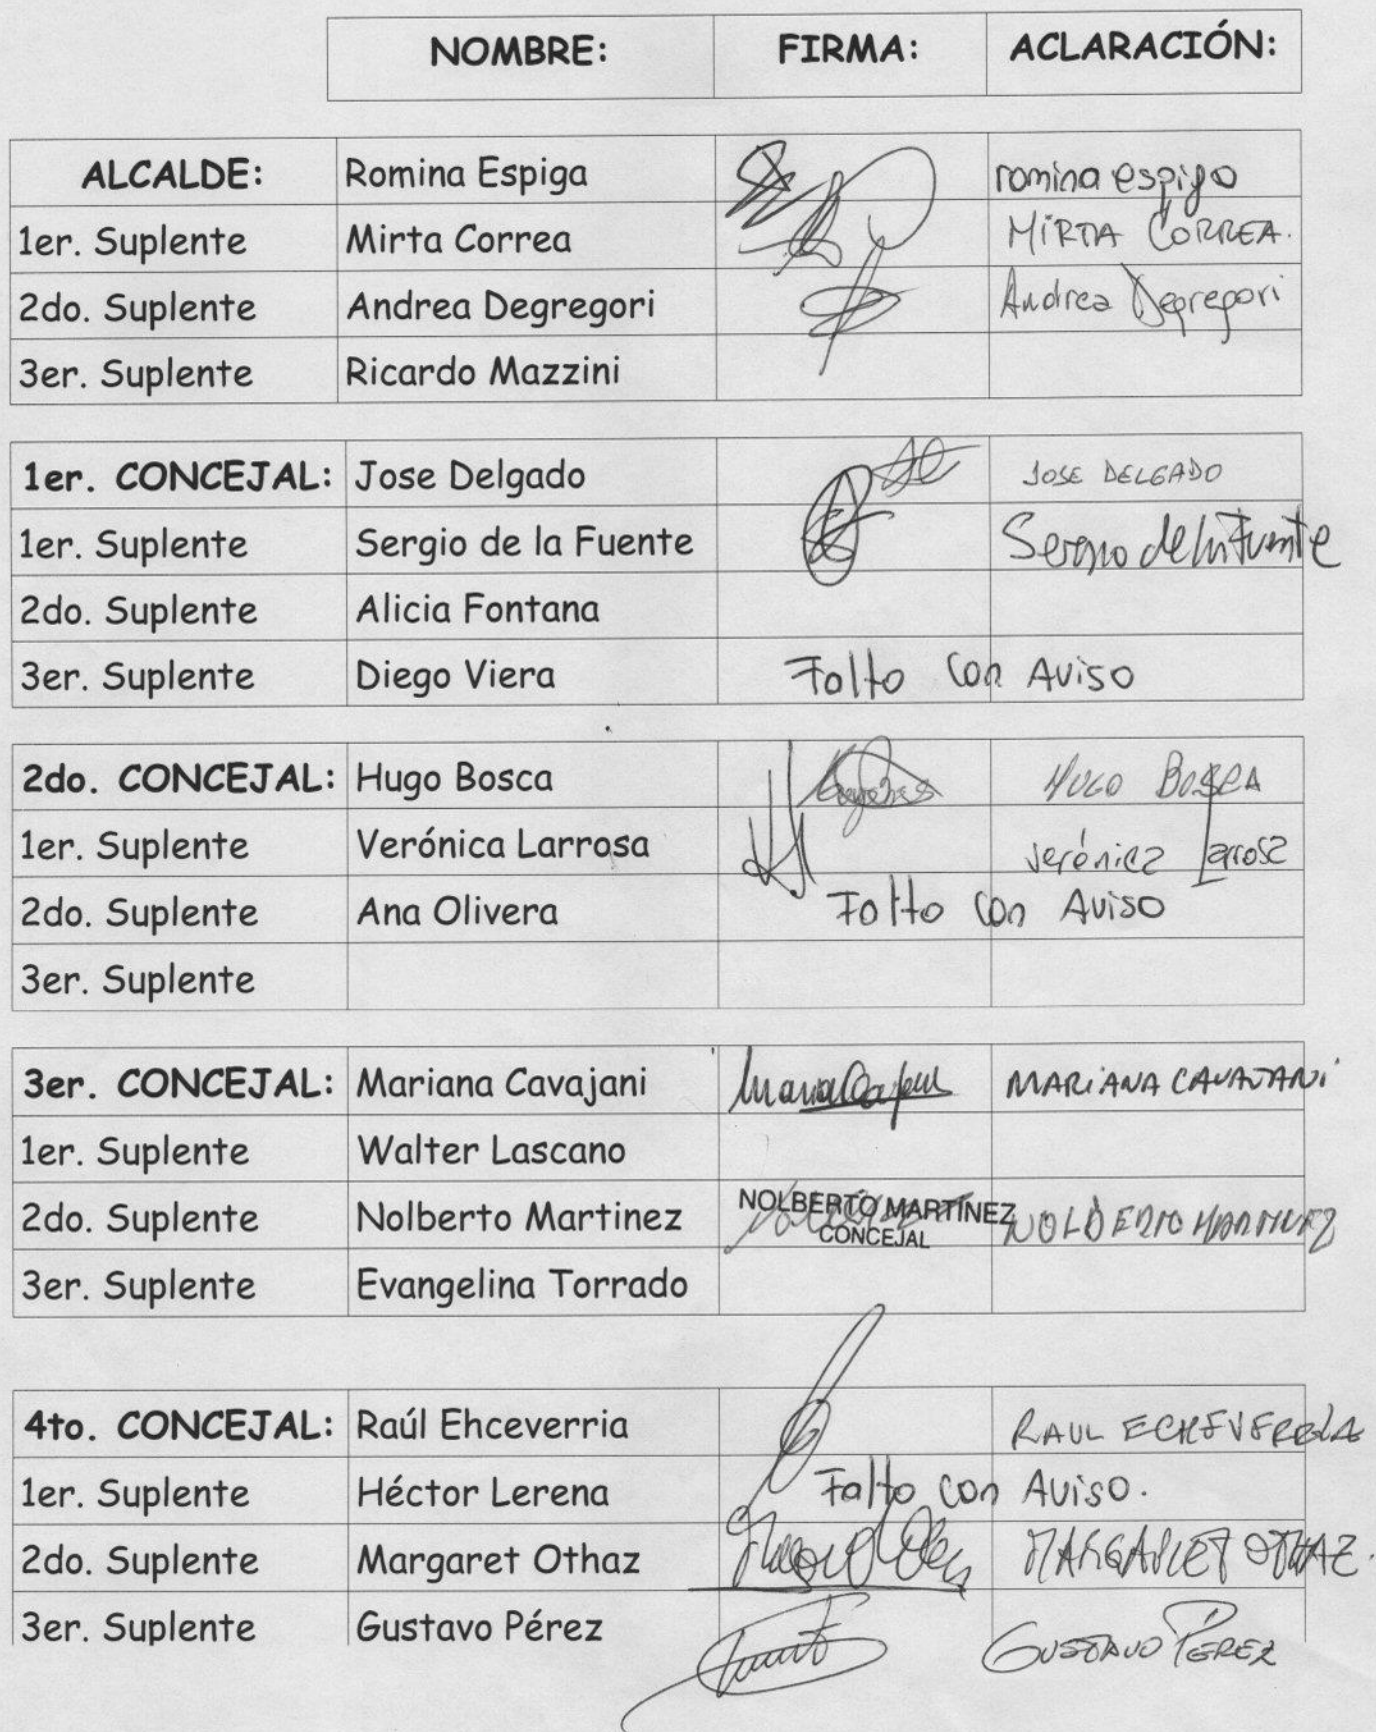 NOMBRE: FIRMA: ACLARACIÓN:
ALCALDE: Romina Espiga romina espiga
1er. Suplente Mirta Correa MIRTA CORREA.
2do. Suplente Andrea Degregori Andrea Degregori
3er. Suplente Ricardo Mazzini
1er. CONCEJAL: Jose Delgado JOSE DELGADO
1er. Suplente Sergio de la Fuente Sergio de la Fuente
2do. Suplente Alicia Fontana
3er. Suplente Diego Viera Falto con Aviso
2do. CONCEJAL: Hugo Bosca HUGO BOSCA
1er. Suplente Verónica Larrosa Verónica Larrosa
2do. Suplente Ana Olivera Falto con Aviso
3er. Suplente
3er. CONCEJAL: Mariana Cavajani MARIANA CAVAJANI
1er. Suplente Walter Lascano
2do. Suplente Nolberto Martinez NOLBERTO MARTÍNEZ NOLBERTO MARTINEZ
CONCEJAL
3er. Suplente Evangelina Torrado
4to. CONCEJAL: Raúl Ehceverria RAUL ECHEVERRIA
1er. Suplente Héctor Lerena Falto con Aviso.
2do. Suplente Margaret Othaz MARGARET OTHAZ.
3er. Suplente Gustavo Pérez GUSTAVO PÉREZ